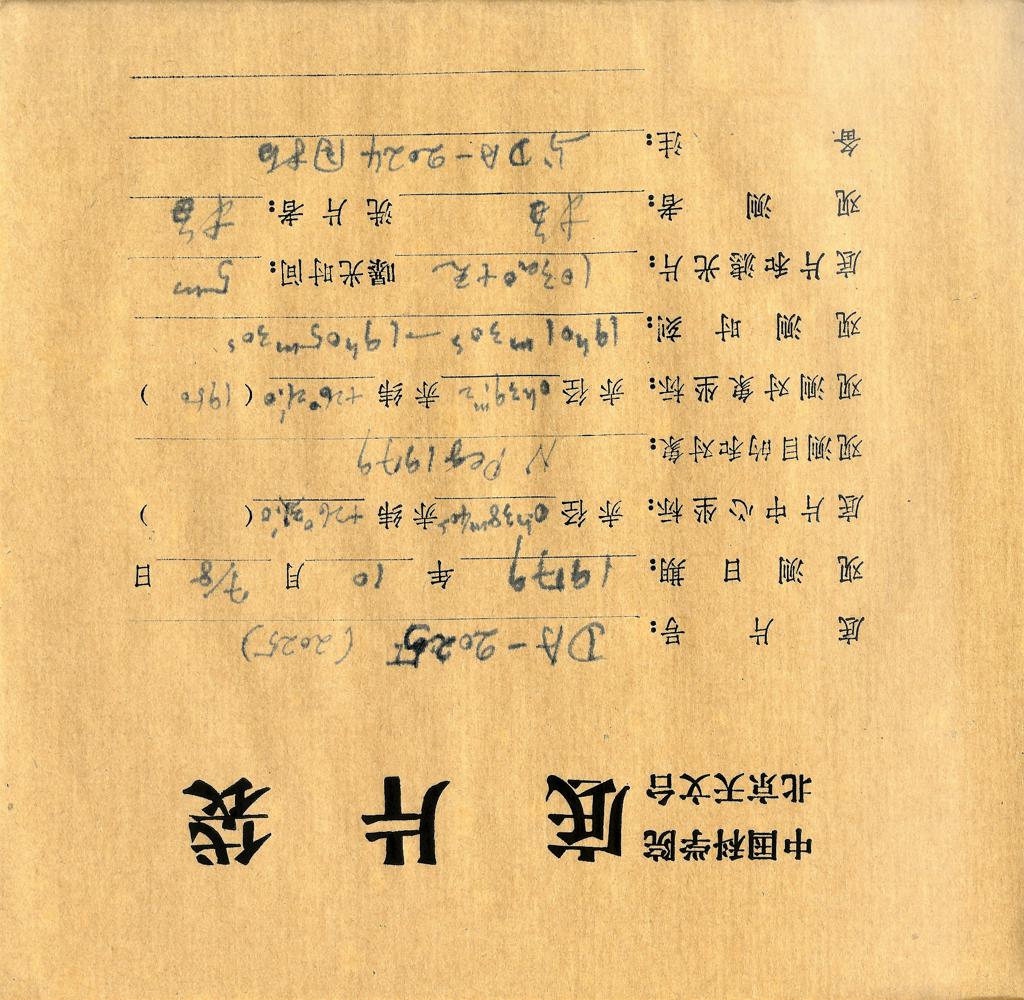 中国科学院
北京天文台
底片袋
底片号: DA-2025 (2025)
观测日期: 1979年10月7/8日
底片中心坐标: 赤径 0h38m40s 赤纬 +26°21′.0 ( )
观测目的和对象: N Peg 1979
观测对象坐标: 赤径 0h39m.2 赤纬 +26°21′.0 (1950)
观测时刻: 19h01m30s—19h05m30s
底片和滤光片: 103aO+无 曝光时间: 5min
观测者: 洗片者:
备注: 与DA-2024同